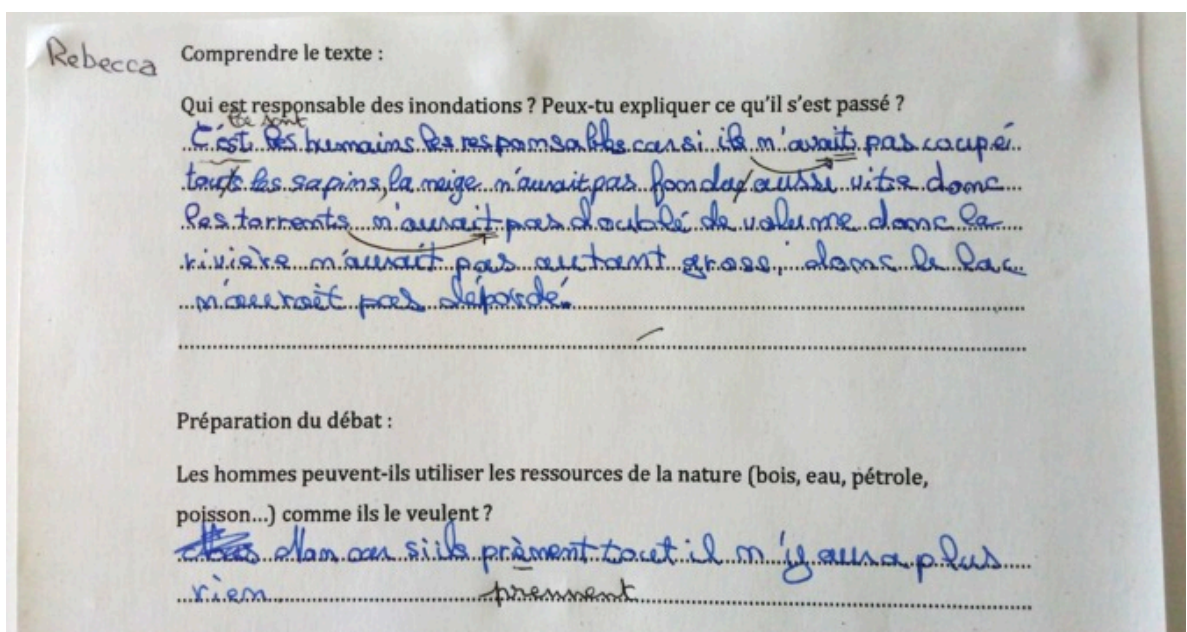 Rebecca
Comprendre le texte :
Qui est responsable des inondations ? Peux-tu expliquer ce qu'il s'est passé ?
Ce sont
C'est les humains les responsables car si ils n'avait pas coupé
touts les sapins, la neige n'aurait pas fonda aussi vite donc
les torrents n'aurait pas doublé de volume donc la
rivière n'aurait pas autant gross, donc le lac
n'auroit pas débordé.
Préparation du débat :
Les hommes peuvent-ils utiliser les ressources de la nature (bois, eau, pétrole,
poisson...) comme ils le veulent ?
Non car si ils prènent tout il n'y aura plus
rien.
prennent